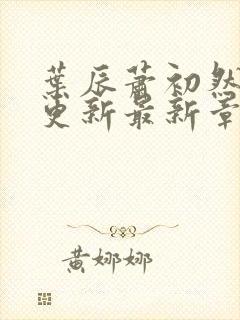 葉辰蕭初然
更新最新章
黄娜娜